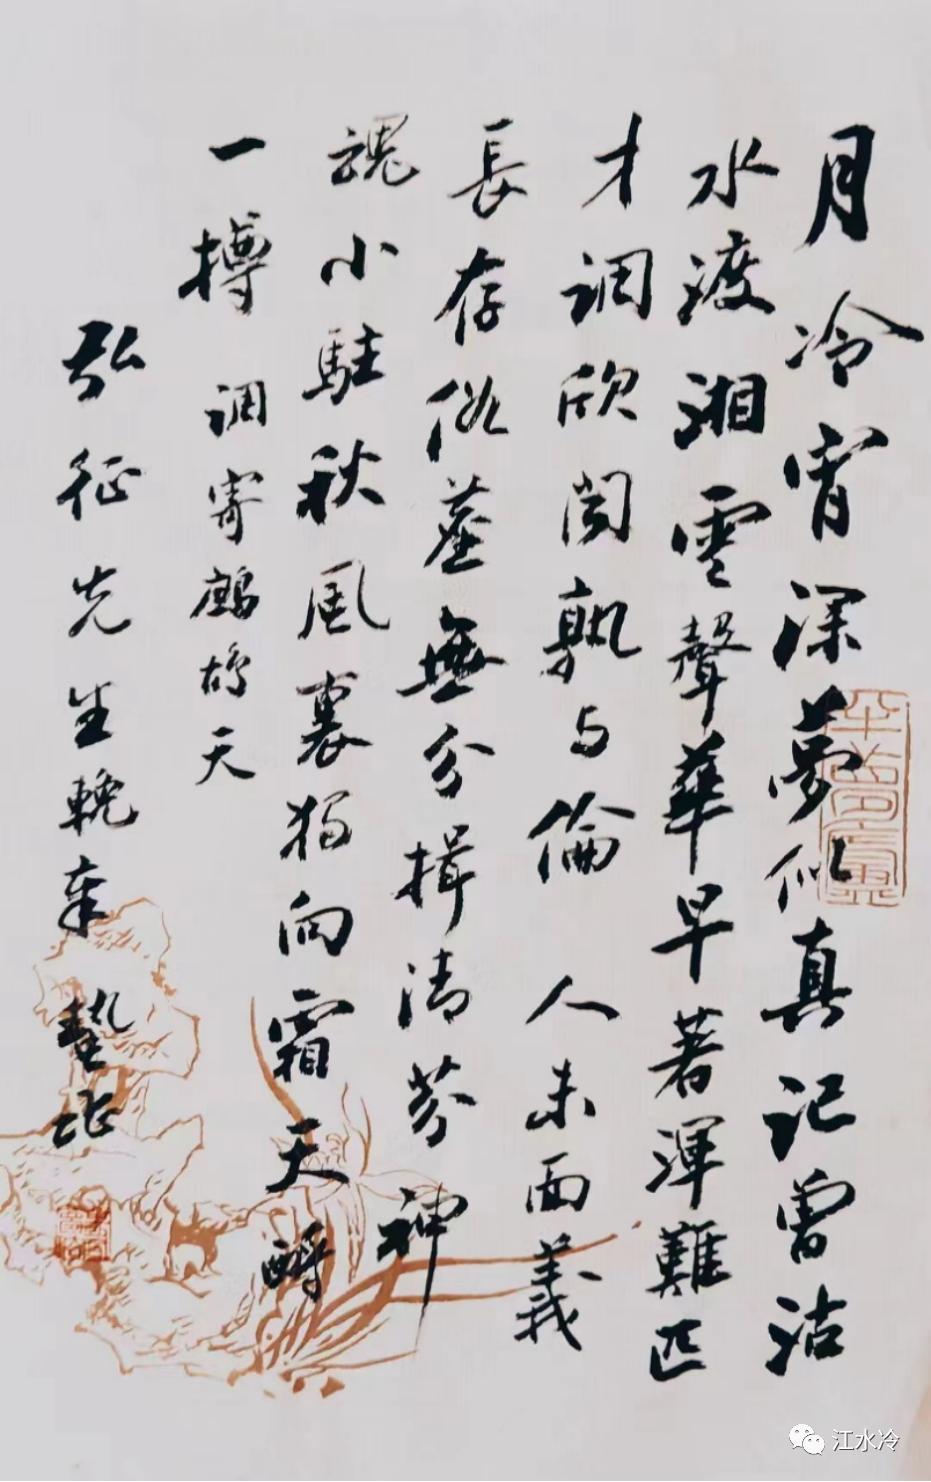 月冷宵深夢似真記曾沽
水渡湘雲聲華早著渾難匹
才調欣聞孰与倫 人未面義
長存俗塵無分揖清芬 神
魂小駐秋風裏獨向霜天酹
一樽 調寄鷓鴣天
弘征先生輓章 蟄堪
半夢廬
江水冷